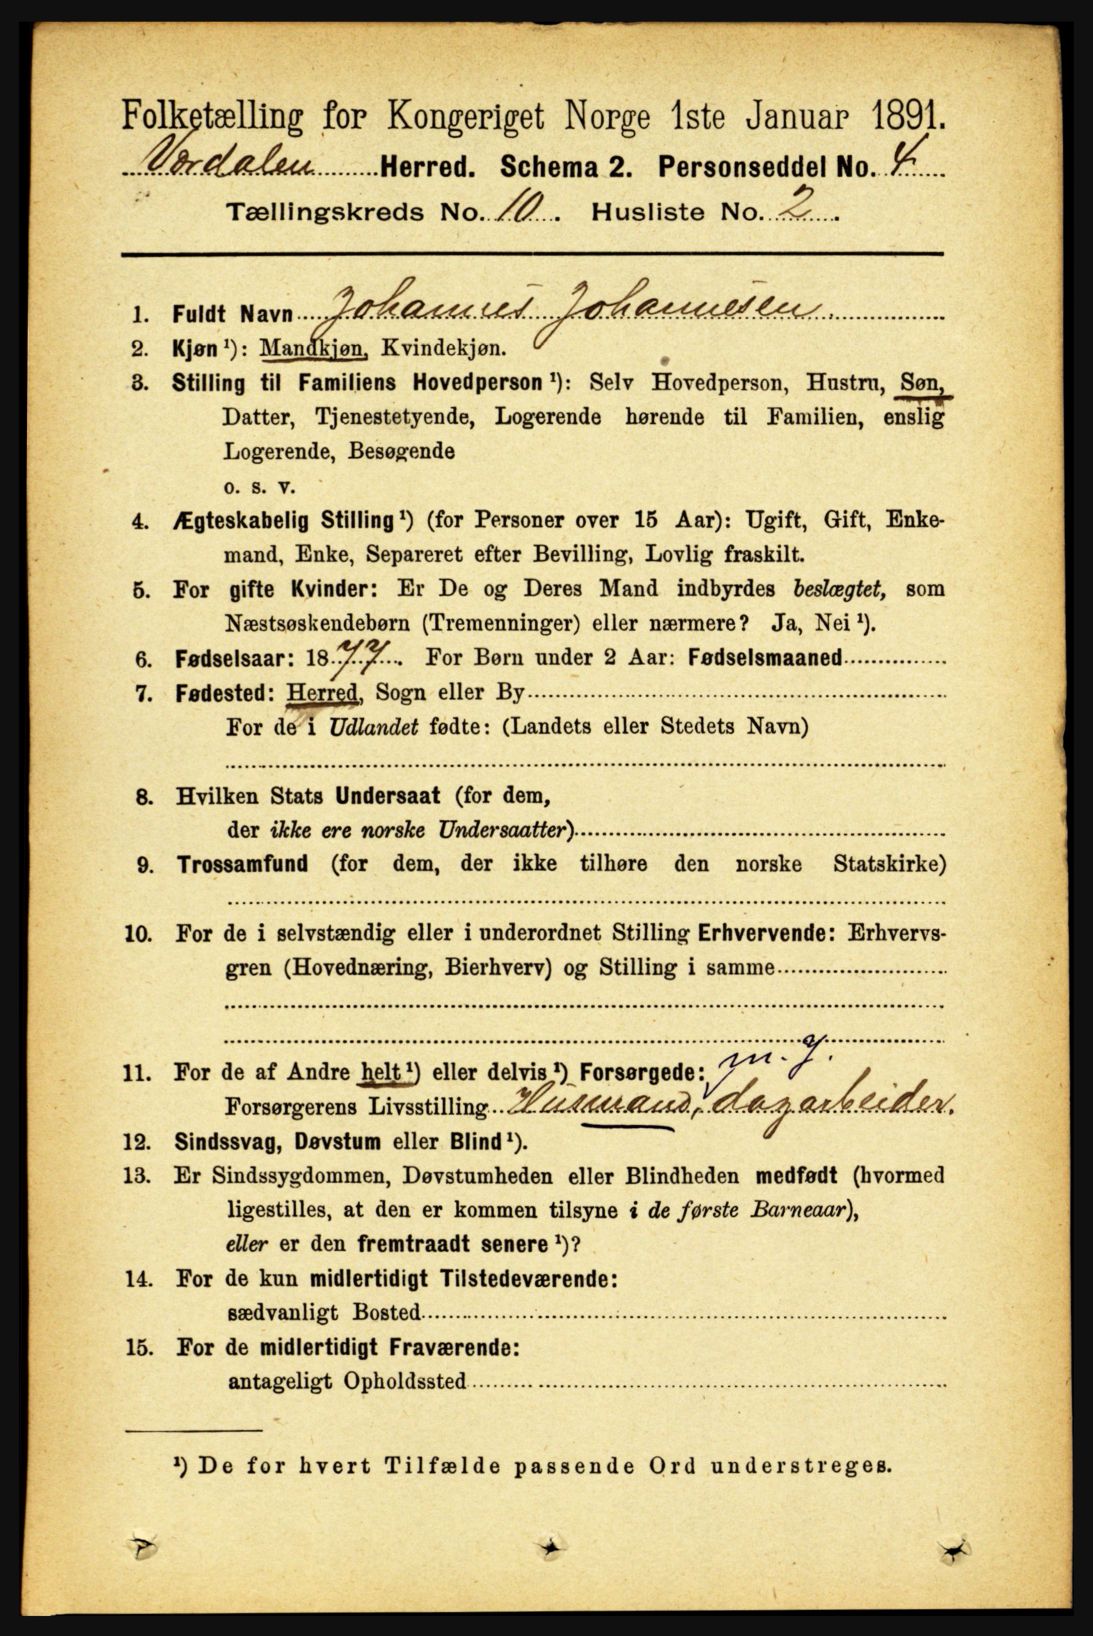 Folketælling for Kongeriget Norge 1ste Januar 1891.
Værdalen Herred. Schema 2. Personseddel No. 4
Tællingskreds No. 10. Husliste No. 2.
1. Fuldt Navn Johannes Johannesen.
2. Kjøn ¹): Mandkjøn, Kvindekjøn.
3. Stilling til Familiens Hovedperson ¹): Selv Hovedperson, Hustru, Søn,
Datter, Tjenestetyende, Logerende hørende til Familien, enslig
Logerende, Besøgende
o. s. v.
4. Ægteskabelig Stilling ¹) (for Personer over 15 Aar): Ugift, Gift, Enke-
mand, Enke, Separeret efter Bevilling, Lovlig fraskilt.
5. For gifte Kvinder: Er De og Deres Mand indbyrdes beslægtet, som
Næstsøskendebørn (Tremenninger) eller nærmere? Ja, Nei ¹).
6. Fødselsaar: 1877. For Børn under 2 Aar: Fødselsmaaned
7. Fødested: Herred, Sogn eller By
For de i Udlandet fødte: (Landets eller Stedets Navn)
8. Hvilken Stats Undersaat (for dem,
der ikke ere norske Undersaatter)
9. Trossamfund (for dem, der ikke tilhøre den norske Statskirke)
10. For de i selvstændig eller i underordnet Stilling Erhvervende: Erhvervs-
gren (Hovednæring, Bierhverv) og Stilling i samme
m. J.
11. For de af Andre helt ¹) eller delvis ¹) Forsørgede:
Forsørgerens Livsstilling Husmand, dagarbeider.
12. Sindssvag, Døvstum eller Blind ¹).
13. Er Sindssygdommen, Døvstumheden eller Blindheden medfødt (hvormed
ligestilles, at den er kommen tilsyne i de første Barneaar),
eller er den fremtraadt senere ¹)?
14. For de kun midlertidigt Tilstedeværende:
sædvanligt Bosted
15. For de midlertidigt Fraværende:
antageligt Opholdssted
¹) De for hvert Tilfælde passende Ord understreges.